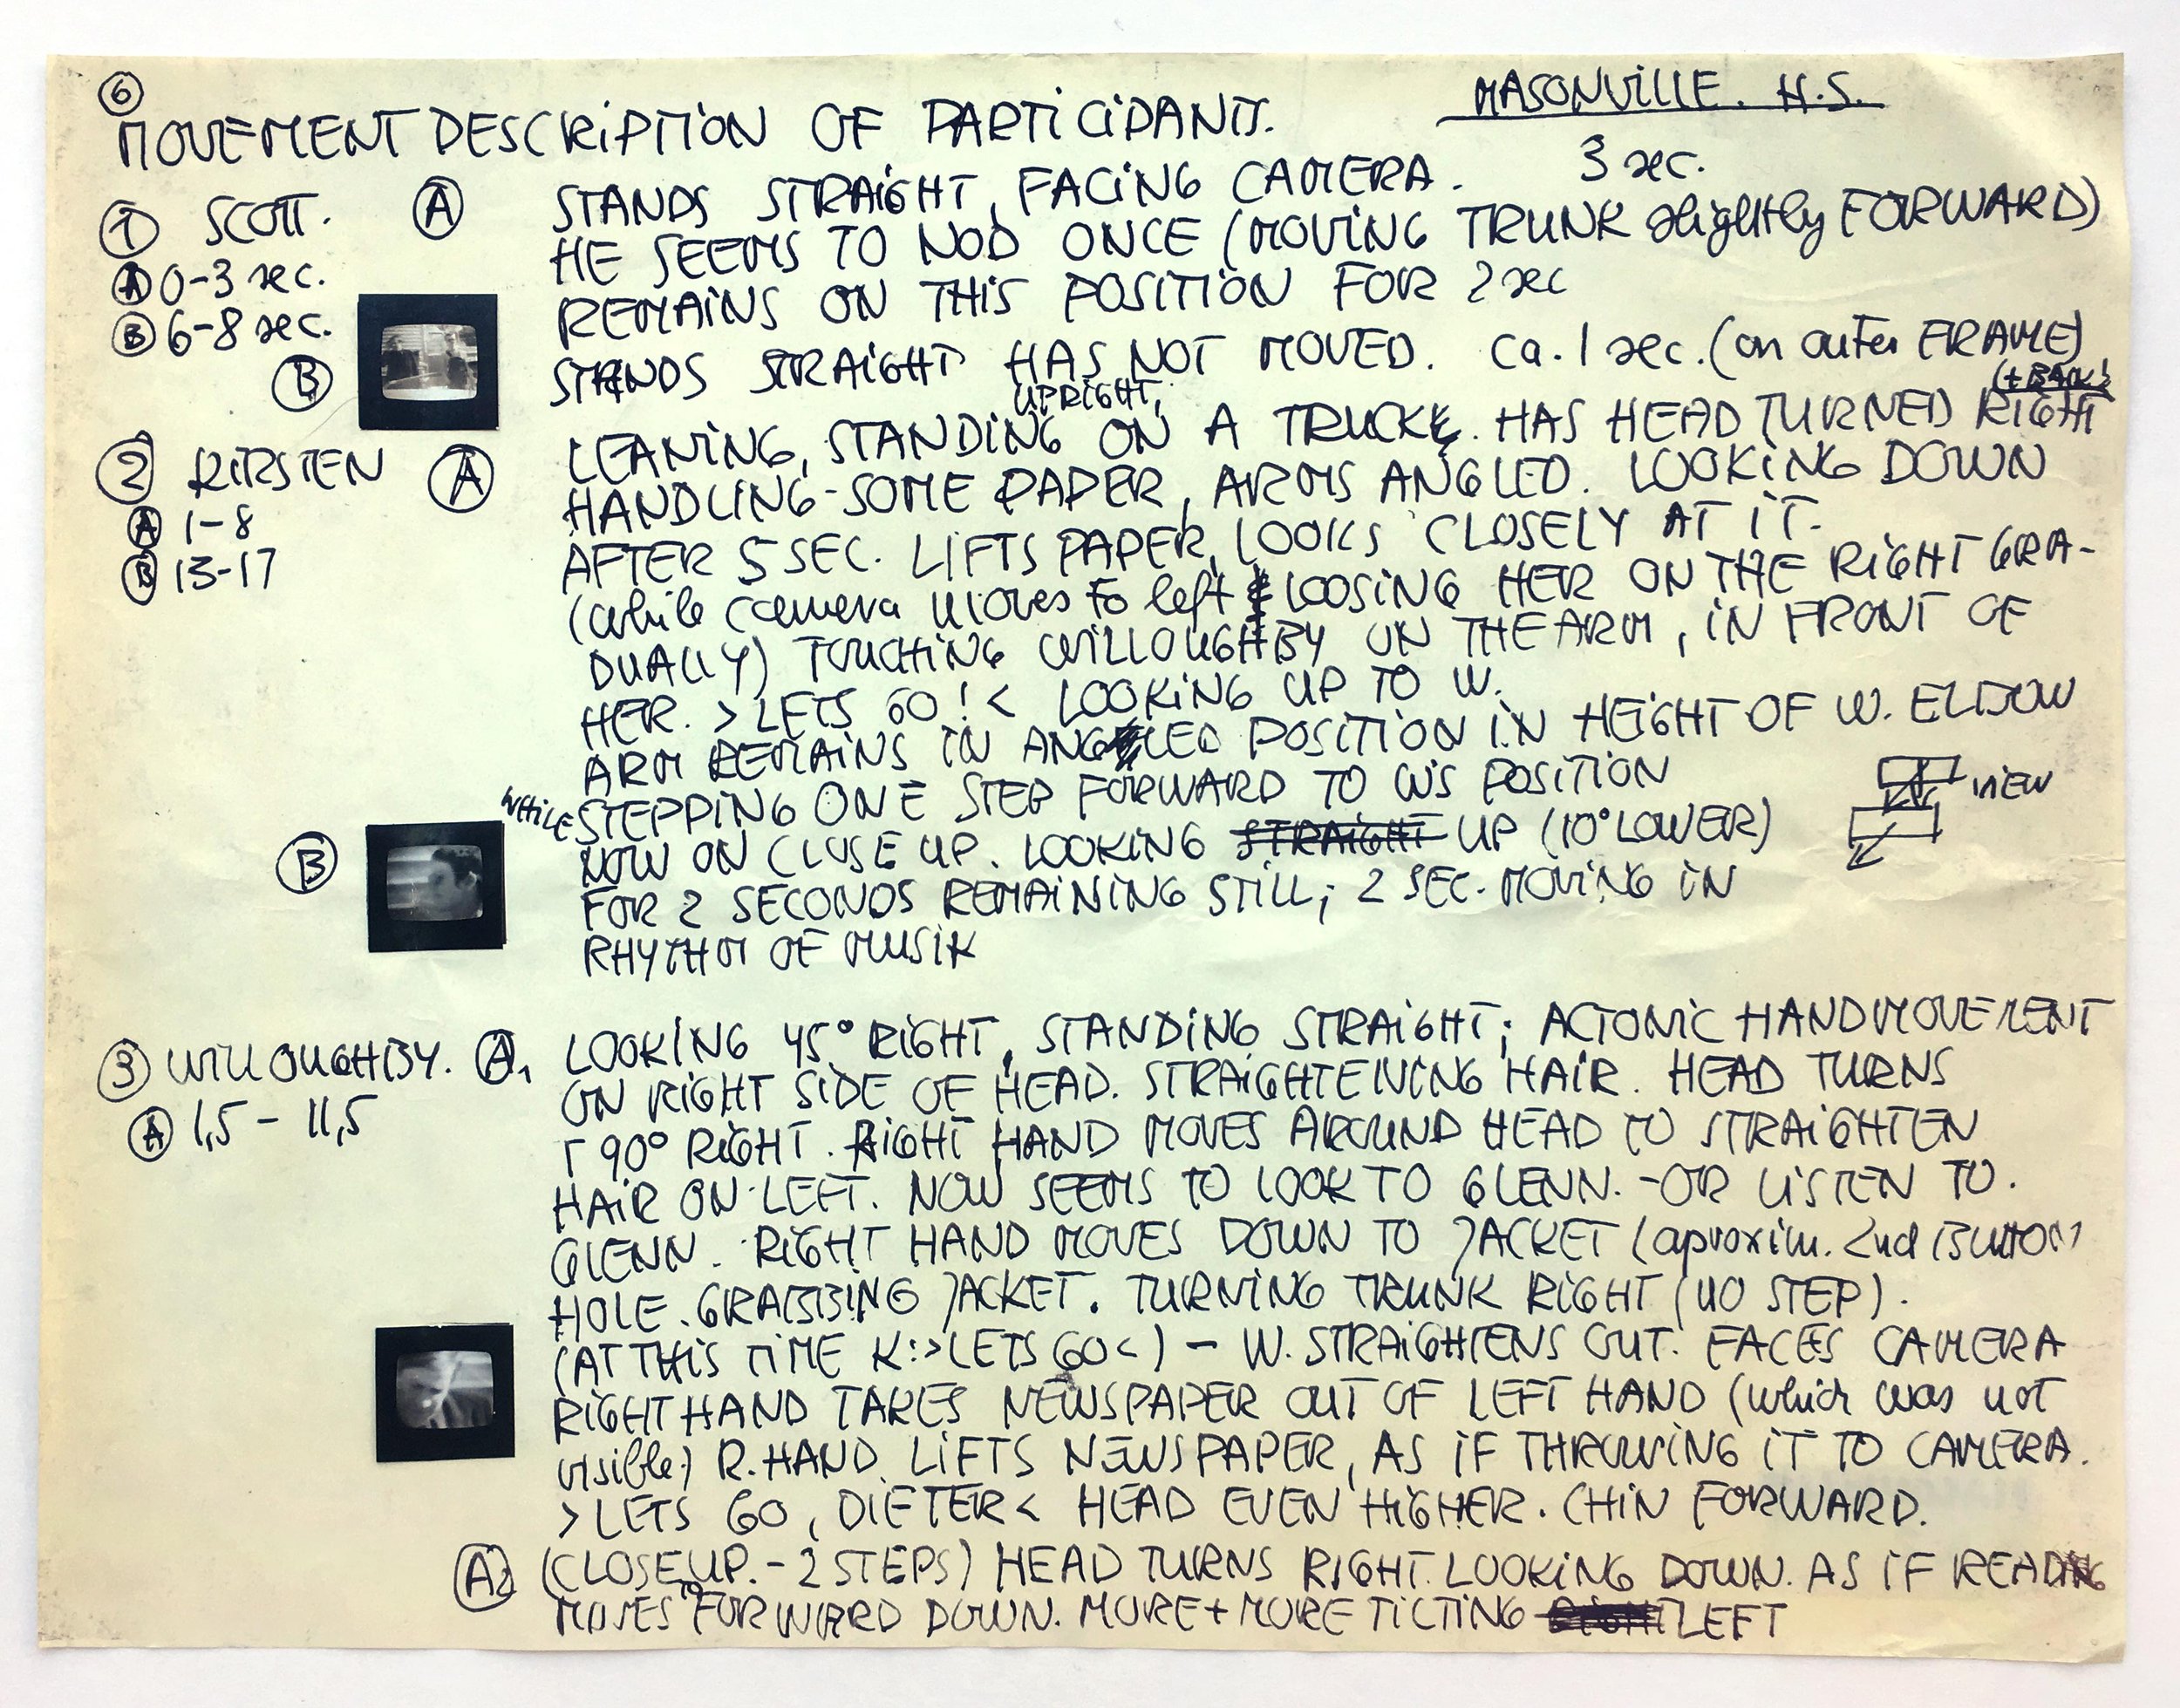 6
MOVEMENT DESCRIPTION OF PARTICIPANTS.
MASONVILLE. H.S.
1 SCOTT.
A 0-3 sec.
B 6-8 sec.
A STANDS STRAIGHT, FACING CAMERA. 3 sec.
HE SEEMS TO NOD ONCE (MOVING TRUNK slightly FORWARD)
REMAINS ON THIS POSITION FOR 2 sec
B STANDS STRAIGHT HAS NOT MOVED. ca. 1 sec. (on outer FRAME)
2 KIRSTEN
A 1-8
B 13-17
UPRIGHT, (+BACK)
A LEANING, STANDING ON A TRUCK. HAS HEAD TURNED RIGHT
HANDLING-SOME PAPER, ARMS ANGLED. LOOKING DOWN
AFTER 5 SEC. LIFTS PAPER, LOOKS CLOSELY AT IT.
(while camera moves to left LOOSING HER ON THE RIGHT GRA-
DUALLY) TOUCHING WILLOUGHBY ON THE ARM, IN FRONT OF
HER. >LETS GO!< LOOKING UP TO W.
ARM REMAINS IN ANGLED POSITION IN HEIGHT OF W. ELBOW
WHILE STEPPING ONE STEP FORWARD TO WS POSITION
VIEW
B NOW ON CLOSE UP. LOOKING STRAIGHT UP (10° LOWER)
FOR 2 SECONDS REMAINING STILL; 2 SEC. MOVING IN
RHYTHM OF MUSIK
3 WILLOUGHBY.
A 1,5 - 11,5
A1 LOOKING 45° RIGHT, STANDING STRAIGHT; ACTONIC HANDMOVEMENT
ON RIGHT SIDE OF HEAD. STRAIGHTENING HAIR. HEAD TURNS
90° RIGHT. RIGHT HAND MOVES AROUND HEAD TO STRAIGHTEN
HAIR ON LEFT. NOW SEEMS TO LOOK TO GLENN. -OR LISTEN TO.
GLENN. RIGHT HAND MOVES DOWN TO JACKET (aproxim. 2nd BUTTON
HOLE. GRABBING JACKET. TURNING TRUNK RIGHT (NO STEP).
(AT THIS TIME K: >LETS GO<) - W. STRAIGHTENS OUT. FACES CAMERA
RIGHT HAND TAKES NEWSPAPER OUT OF LEFT HAND (which was not
visible) R. HAND LIFTS NEWSPAPER, AS IF THROWING IT TO CAMERA.
>LETS GO, DIETER< HEAD EVEN HIGHER. CHIN FORWARD.
A2 (CLOSEUP. - 2 STEPS) HEAD TURNS RIGHT. LOOKING DOWN. AS IF READING
MOVES TO FORWARD DOWN. MORE + MORE TILTING RIGHT LEFT